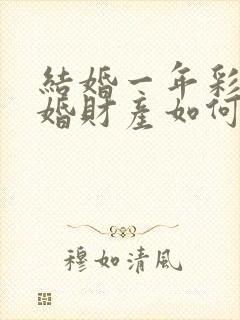 結婚一年彩
婚財產如何
穆如清風